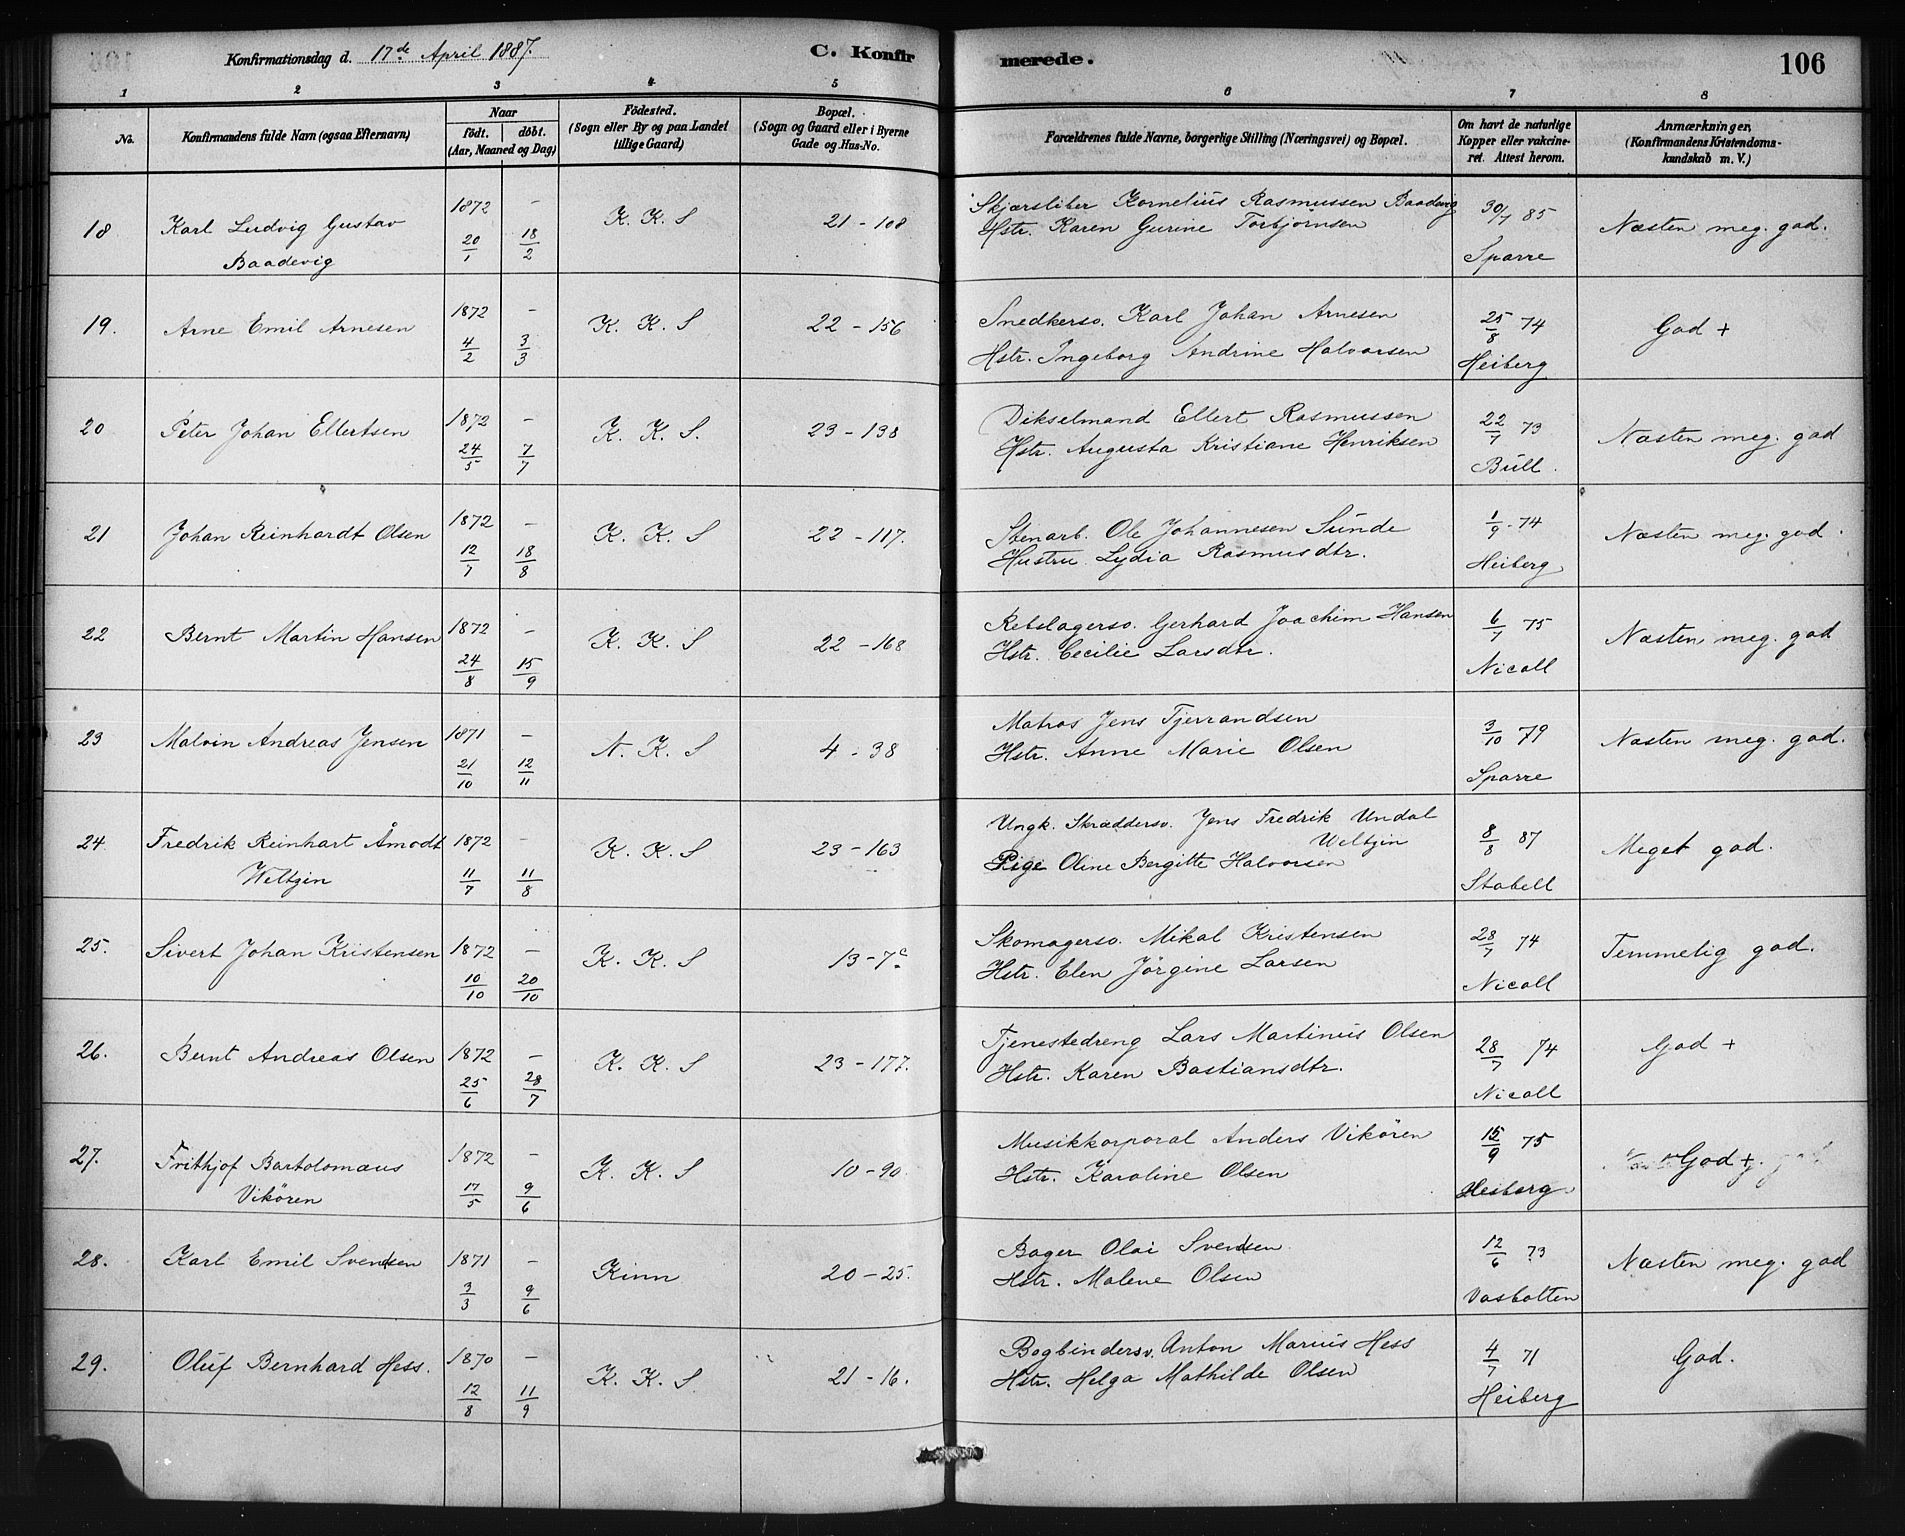 Konfirmationsdag d. 17de April 1887.
C. Konfirmerede.
106
1 2 3 4 5 6 7 8
No.
Konfirmandens fulde Navn (ogsaa Efternavn)
Naar
födt. döbt.
(Aar, Maaned og Dag)
Födested.
(Sogn eller By og paa Landet
tillige Gaard)
Bopæl.
(Sogn og Gaard eller i Byerne
Gade og Hus-No.
Forældrenes fulde Navne, borgerlige Stilling (Næringsvei) og Bopæl.
Om havt de naturlige
Kopper eller vakcine-
ret. Attest herom.
Anmærkninger
(Konfirmandens Kristendoms-
kundskab m. V.)
18 Karl Ludvig Gustav 1872 – K. K. S 21 – 108 Skjærsliber Kornelius Rasmussen Baadevig 30/7 85 Næsten meg. god.
Baadevig 20/1 18/2 Hstr. Karen Gurine Torbjörnsen Sparre
19. Arne Emil Arnesen 1872 – K. K. S 22 – 156 Snedkersv. Karl Johan Arnesen 25/8 74 God +
4/2 3/3 Hstr. Ingeborg Andrine Halvorsen Heiberg
20 Peter Johan Ellertsen 1872 – K. K. S. 23 – 138 Dikselmand Ellert Rasmussen 22/7 73 Næsten meg. god
24/5 7/7 Hstr. Augusta Kristiane Henriksen Bull.
21 Johan Reinhardt Olsen 1872 – K. K. S 22 – 117. Stenarb. Ole Johannesen Sunde 1/9 74 Næsten meg. god.
12/7 18/8 Hustru Lydia Rasmusdtr. Heiberg
22 Bernt Martin Hansen 1872 – K. K. S 22 – 168 Rebslagersv. Gerhard Joachim Hansen 6/7 75 Næsten meg. god
24/8 15/9 Hstr. Cecilie Larsdtr. Nicoll
23 Malvin Andreas Jensen 1871 – N. K. S 4 – 38 Matros Jens Tjerrandsen 3/10 79 Næsten meg. god.
21/10 12/11 Hstr. Anne Marie Olsen Sparre
24 Fredrik Reinhart Åmodt 1872 – K. K. S 23 – 163 Ungk. Skræddersv. Jens Fredrik Undal Weltzin 8/8 87 Meget god.
Weltzin 11/7 11/8 Pige Oline Bergitte Halvorsen Stabell
25. Sivert Johan Kristensen 1872 – K. K. S 13 – 7c Skomagersv. Mikal Kristensen 28/7 74 Temmelig god.
10/10 20/10 Hstr. Elen Jörgine Larsen Nicoll
26. Bernt Andreas Olsen 1872 – K. K. S 23 – 177. Tjenestedreng Lars Martinus Olsen 28/7 74 God +
25/6 28/7 Hstr. Karen Bastiansdtr. Nicoll
27. Frithjof Bartolomæus 1872 – K. K. S 10 – 90. Musikkorporal Anders Vikören 15/9 75 God +
Vikören 17/5 9/6 Hstr. Karoline Olsen Heiberg
28. Karl Emil Svendsen 1871 – Kinn 20 – 25. Bager Olai Svendsen 12/6 73 Næsten meg. god
3/3 9/6 Hstr. Malene Olsen Vasbotten
29. Oluf Bernhard Hess. 1870 – K. K. S. 21 – 16. Bogbindersv. Anton Marius Hess 4/7 71 God.
12/8 11/9 Hstr. Helga Mathilde Olsen Heiberg